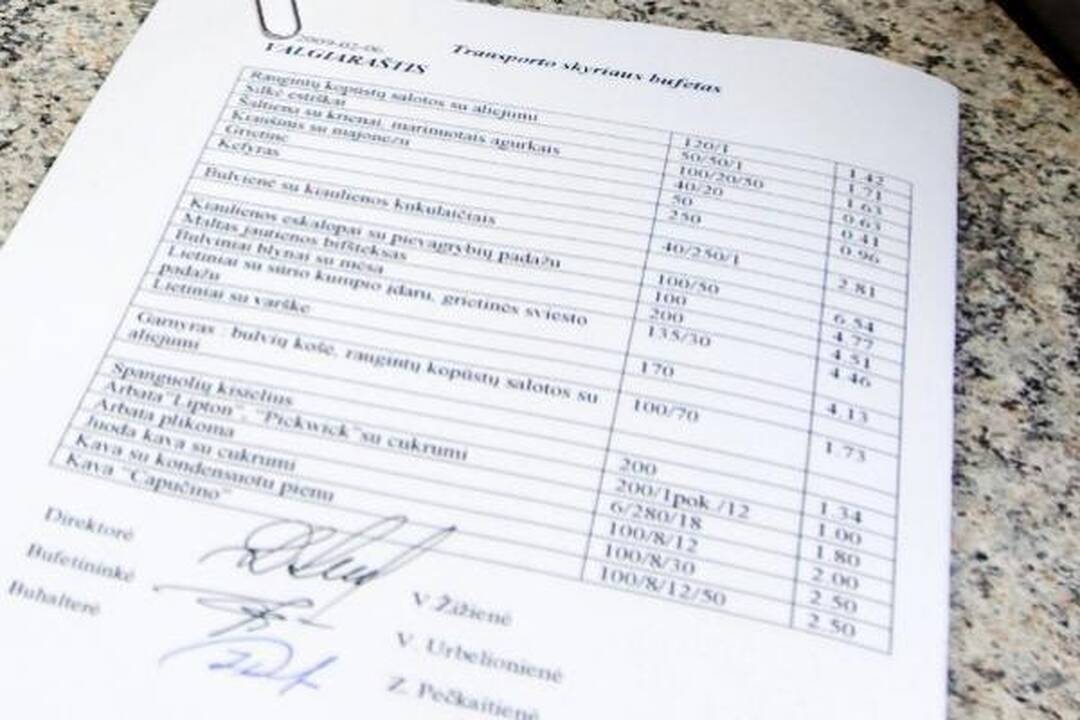 2009-02-06
VALGIARAŠTIS Transporto skyriaus bufetas
Raugintų kopūstų salotos su aliejumi 120/1 1.42
Silkė estiškai 50/50/1 1.71
Šaltiena su krienai, marinuotais agurkais 100/20/50 1.63
Kiaušinis su majonezu 40/20 0.63
Grietinė 50 0.41
Kefyras 250 0.96
Bulvienė su kiaulienos kukulaičiais 40/250/1 2.81
Kiaulienos eskalopai su pievagrybių padažu 100/50 6.54
Maltas jautienos bifšteksas 100 4.77
Bulviniai blynai su mėsa 200 4.51
Lietiniai su sūrio kumpio įdaru, grietinės sviesto 135/30 4.46
padažu
Lietiniai su varške 170 4.13
Garnyras bulvių košė, raugintų kopūstų salotos su 100/70 1.73
aliejumi
Spanguolių kisielius 200 1.34
Arbata"Lipton", "Pickwick"su cukrumi 200/1pok./12 1.00
Arbata plikoma 6/280/18 1.80
Juoda kava su cukrumi 100/8/12 2.00
Kava su kondensuotu pienu 100/8/30 2.50
Kava "Capučino" 100/8/12/50 2.50
Direktorė V.Žižienė
Bufetininkė V. Urbelionienė
Buhalterė Z. Pečkaitienė